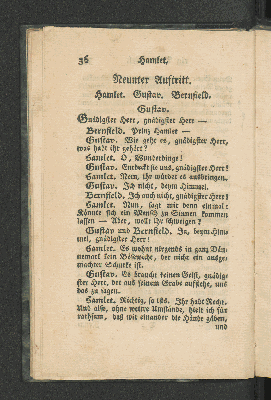 36 Hamlet,
Neunter Auftritt.
Hamlet. Gustav. Bernfield.
Gustav.
Gnädigster Herr, gnädigster Herr —
Bernfield. Prinz Hamlet —
Gustav. Wie geht es, gnädigster Herr,
was habt ihr gehört?
Hamlet. O, Wunderdinge!
Gustav. Entdeckt sie uns, gnädigster Herr!
Hamlet. Nein, ihr würdet es ausbringen.
Gustav. Ich nicht, beym Himmel.
Bernfield. Ich auch nicht, gnädigster Herr!
Hamlet. Nun, sagt wir denn einmal:
Könnte sich ein Mensch zu Sinnen kommen
lassen — Aber, wollt ihr schweigen?
Gustav und Bernfield. Ja, beym Him-
mel, gnädigster Herr!
Hamlet. Es wohnt nirgends in ganz Dän-
nemark kein Bösewicht, der nicht ein ausge-
machter Schurke ist.
Gustav. Es braucht keinen Geist, gnädig-
ster Herr, der aus seinem Grabe aufstehe, uns
das zu sagen.
Hamlet. Richtig, so ists. Ihr habt Recht.
Und also, ohne weitre Umstände, hielt ich für
rathsam, daß wir einander die Hände gäben,
und